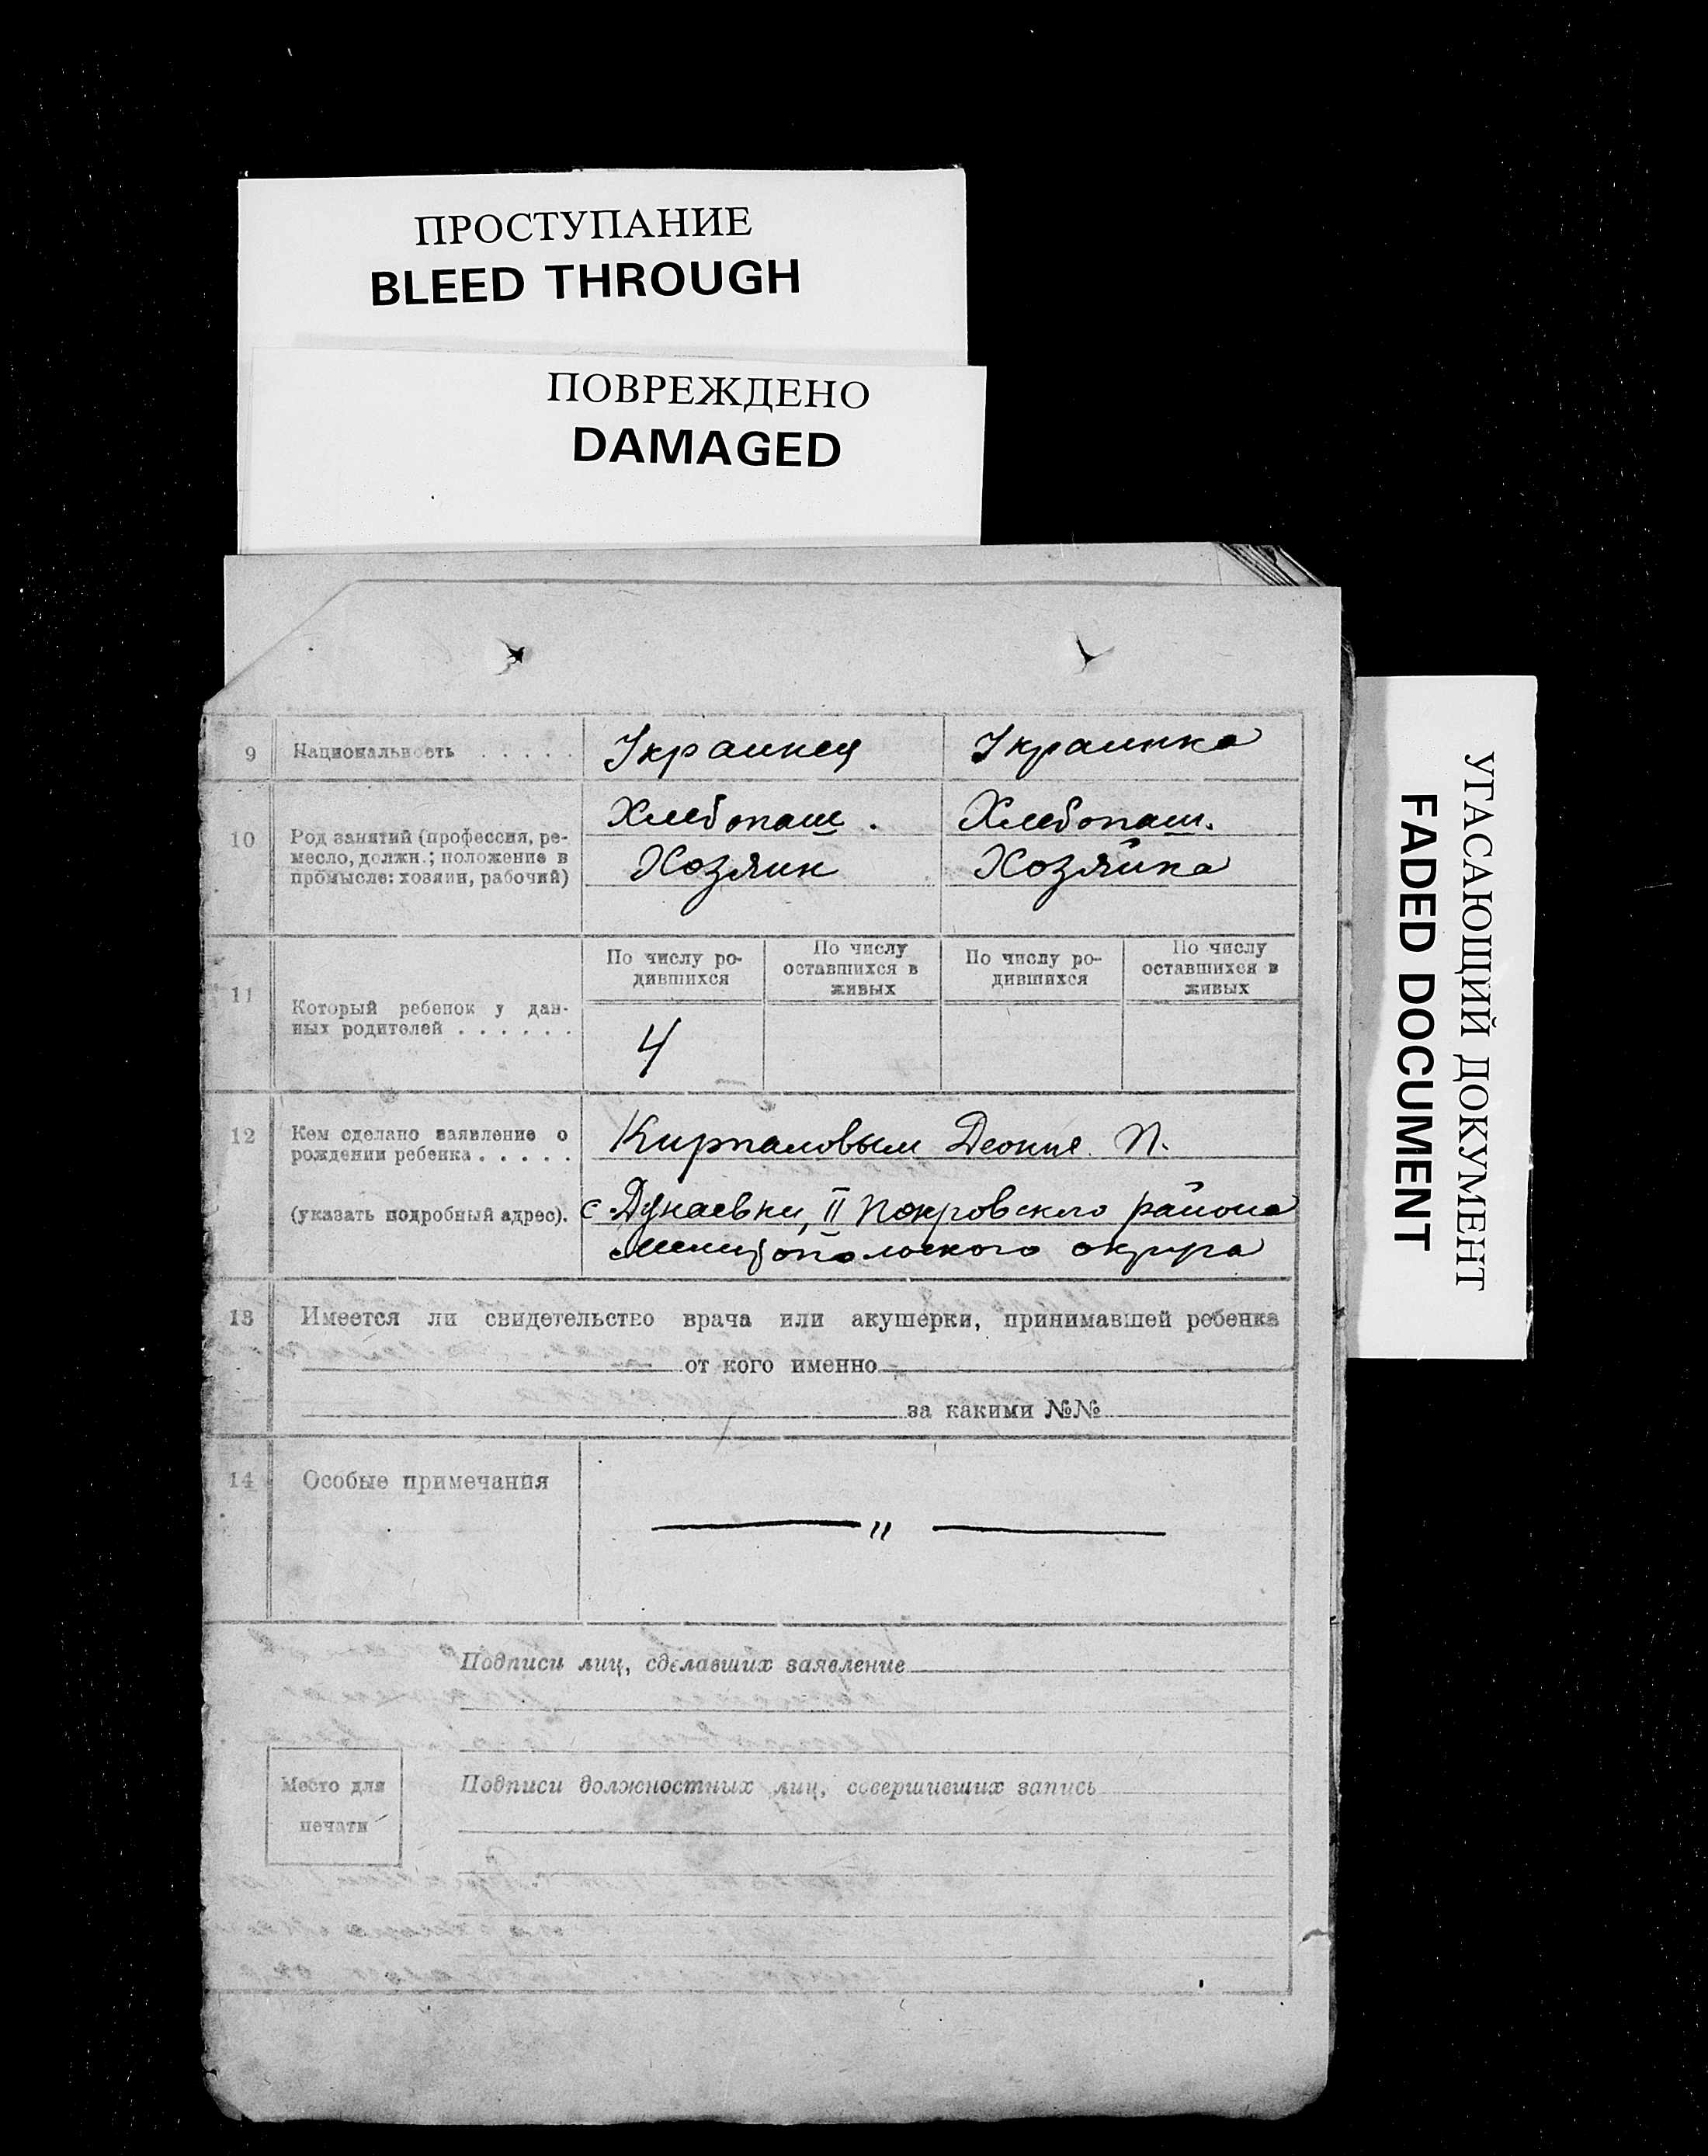 ПРОСТУПАНИЕ
BLEED THROUGH
ПОВРЕЖДЕНО
DAMAGED
УГАСАЮЩИЙ ДОКУМЕНТ
FADED DOCUMENT
9 Национальность . . . . . Украинец Украинка
10 Род занятий (профессия, ре-
месло, должн.; положение в
промысле: хозяин, рабочий)
Хлебопаш. Хлебопаш.
Хозяин Хозяйка
11 Который ребенок у дан-
ных родителей . . . . . .
По числу ро-
дившихся
По числу
оставшихся в
живых
По числу ро-
дившихся
По числу
оставшихся в
живых
4
12 Кем сделано заявление о
рождении ребенка . . . . .
(указать подробный адрес).
Кирпаловым П.
с. Дунаевки, II Покровского района
Мелитопольского округа
13 Имеется ли свидетельство врача или акушерки, принимавшей ребенка
от кого именно
за какими №№
14 Особые примечания
— " —
Подписи лиц, сделавших заявление
Место для
печати
Подписи должностных лиц, совершивших запись